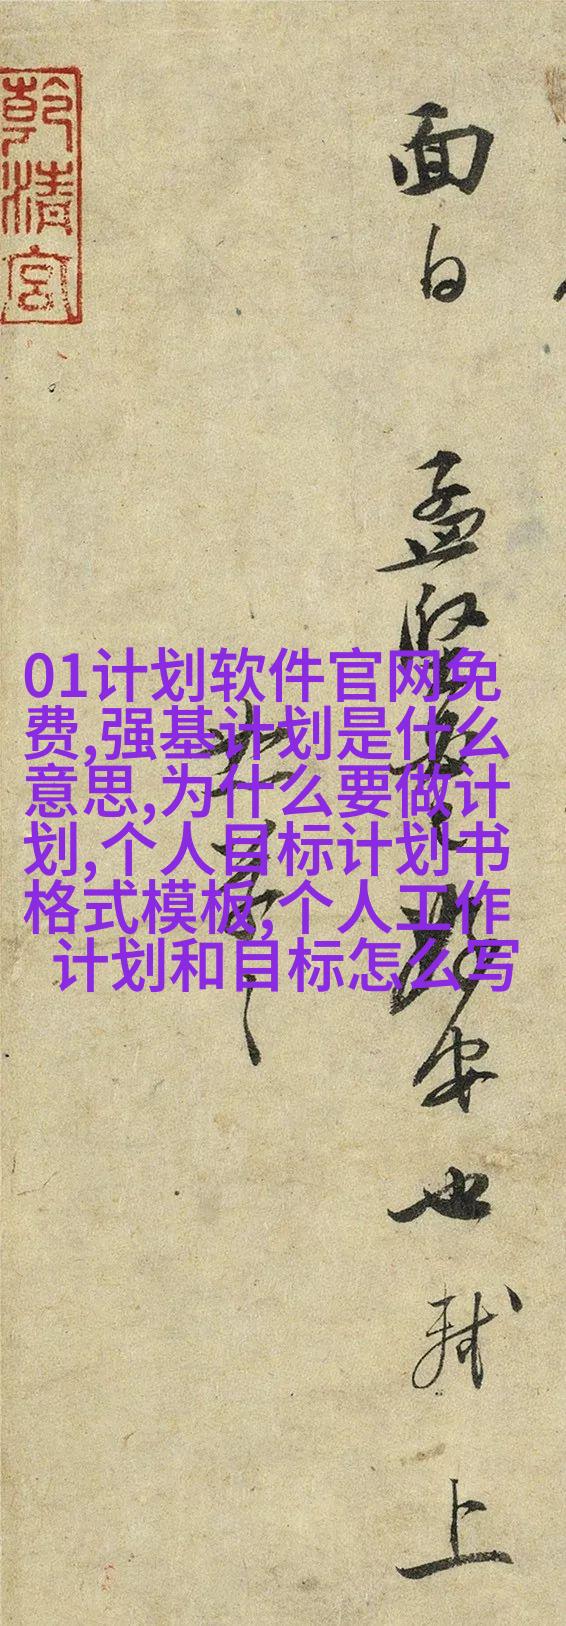 01计划软件官网免
费,强基计划是什么
意思,为什么要做计
划,个人目标计划书
格式模板,个人工作
计划和目标怎么写
面白
孟坚
安也轼
上
乾清宫